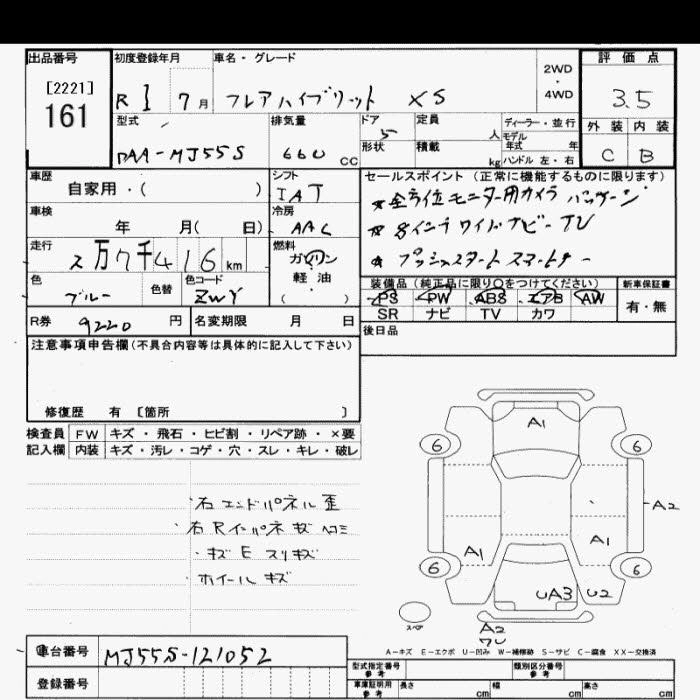 出品番号
[2221]
161
初度登録年月
R 1 7 月
車名・グレード
フレアハイブリット XS
2WD
・
4WD
評価点
3.5
外装 内装
C B
型式
DAA-MJ55S
排気量
660 CC
ドア
5
形状
定員
人
積載
kg
ディーラー・並行
モデル
年式 年
ハンドル 左・右
車歴
自家用・( )
シフト
IAT
車検
年 月( 日)
冷房
AAC
走行
2万7千416km
燃料
ガソリン
軽油
( )
色
ブルー
色替
色コード
ZWY
R券
9220 円
名変期限 月 日
セールスポイント(正常に機能するものに限ります)
★全方位モニター用カメラ パッケージ
★8インチワイドナビ-TV
★プッシュスタート スマートキー
装備品(純正品に限り○をつけてください)
PS PW ABS エアB AW
SR ナビ TV カワ
新車保証書
有・無
後日品
注意事項申告欄(不具合内容等は具体的に記入して下さい)
修復歴 有 〔箇所 〕
検査員 FW キズ・飛石・ヒビ割・リペア跡・×要
記入欄 内装 キズ・汚レ・コゲ・穴・スレ・キレ・破レ
右エンドパネル歪
右Rインパネ キズ ヘコミ
・キズ E スリキズ
・ホイールキズ
A1
6 6
A2
A1 A1
6 6
UA3 U2
スペア
A2
A-キズ E-エクボ U-凹み W-補修跡 S-サビ C-腐食 XX-交換済
車台番号 MJ55S-121052
登録番号
型式指定番号
参考
類別区分番号
参考
車庫証明用
参考
長さ cm 幅 cm 高さ cm